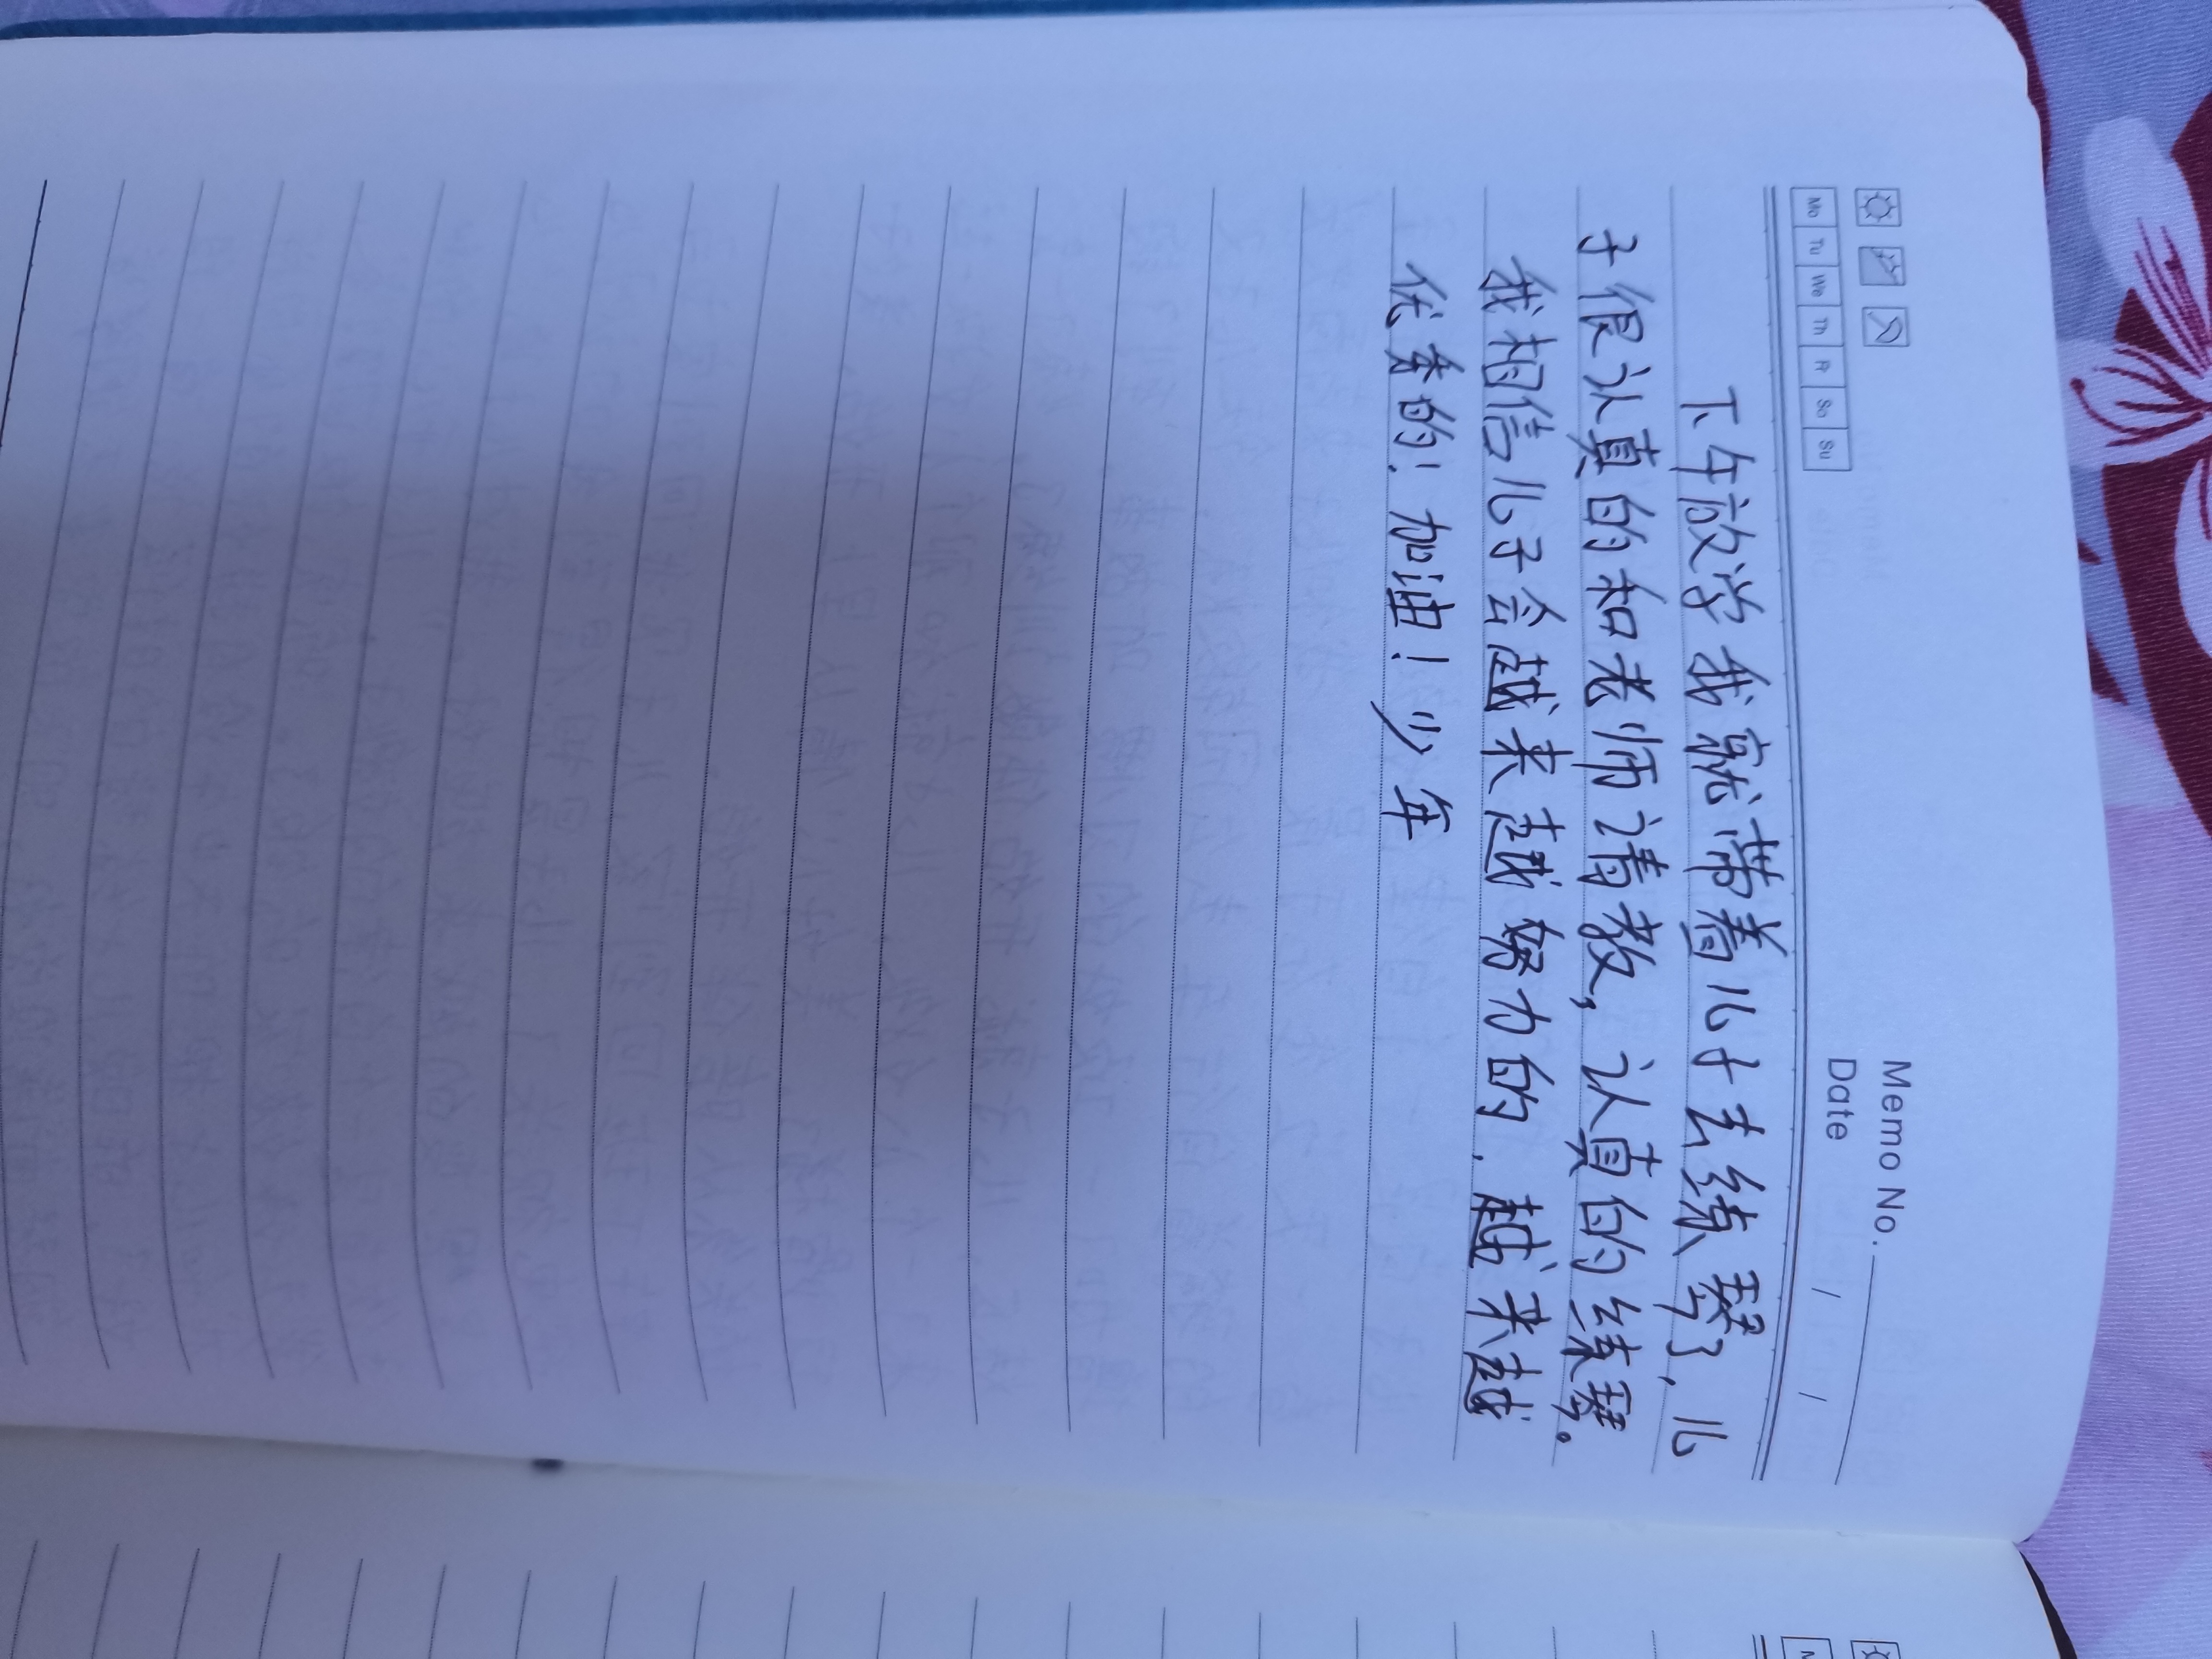 Memo No.
Date / /
Mo Tu We Th Fr Sa Su
下午放学我就带着儿子去练琴了,儿
子很认真的和老师请教,认真的练琴。
我相信儿子会越来越努力的,越来越
优秀的!加油!少年